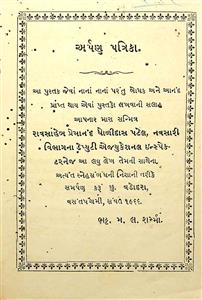 અર્પણ પત્રિકા.
આ પુસ્તક જેવાં નાનાં નાનાં પરંતુ બોધક અને આનન્દ
પ્રાપ્ત થાય એવાં પુસ્તકો લખવાની સલાહ
આપનાર મારા સન્મિત્ર
રાવસાહેબ પ્રેમાનન્દ ધોળીદાસ પટેલ, નવસારી
વિભાગના ડેપ્યુટી એજ્યુકેશનલ ઇન્સ્પેક-
ટરનેજ આ લઘુ લેખ તેમની સાથેના,
અત્યંત સ્નેહસંબંધની નિશાની તરીકે
સમર્પણ કરૂં છું. વડોદરા,
વસન્તપંચમી, સંવત ૧૯૬૬.
ભટ્ટ. મ. લ. શર્મ્મા.